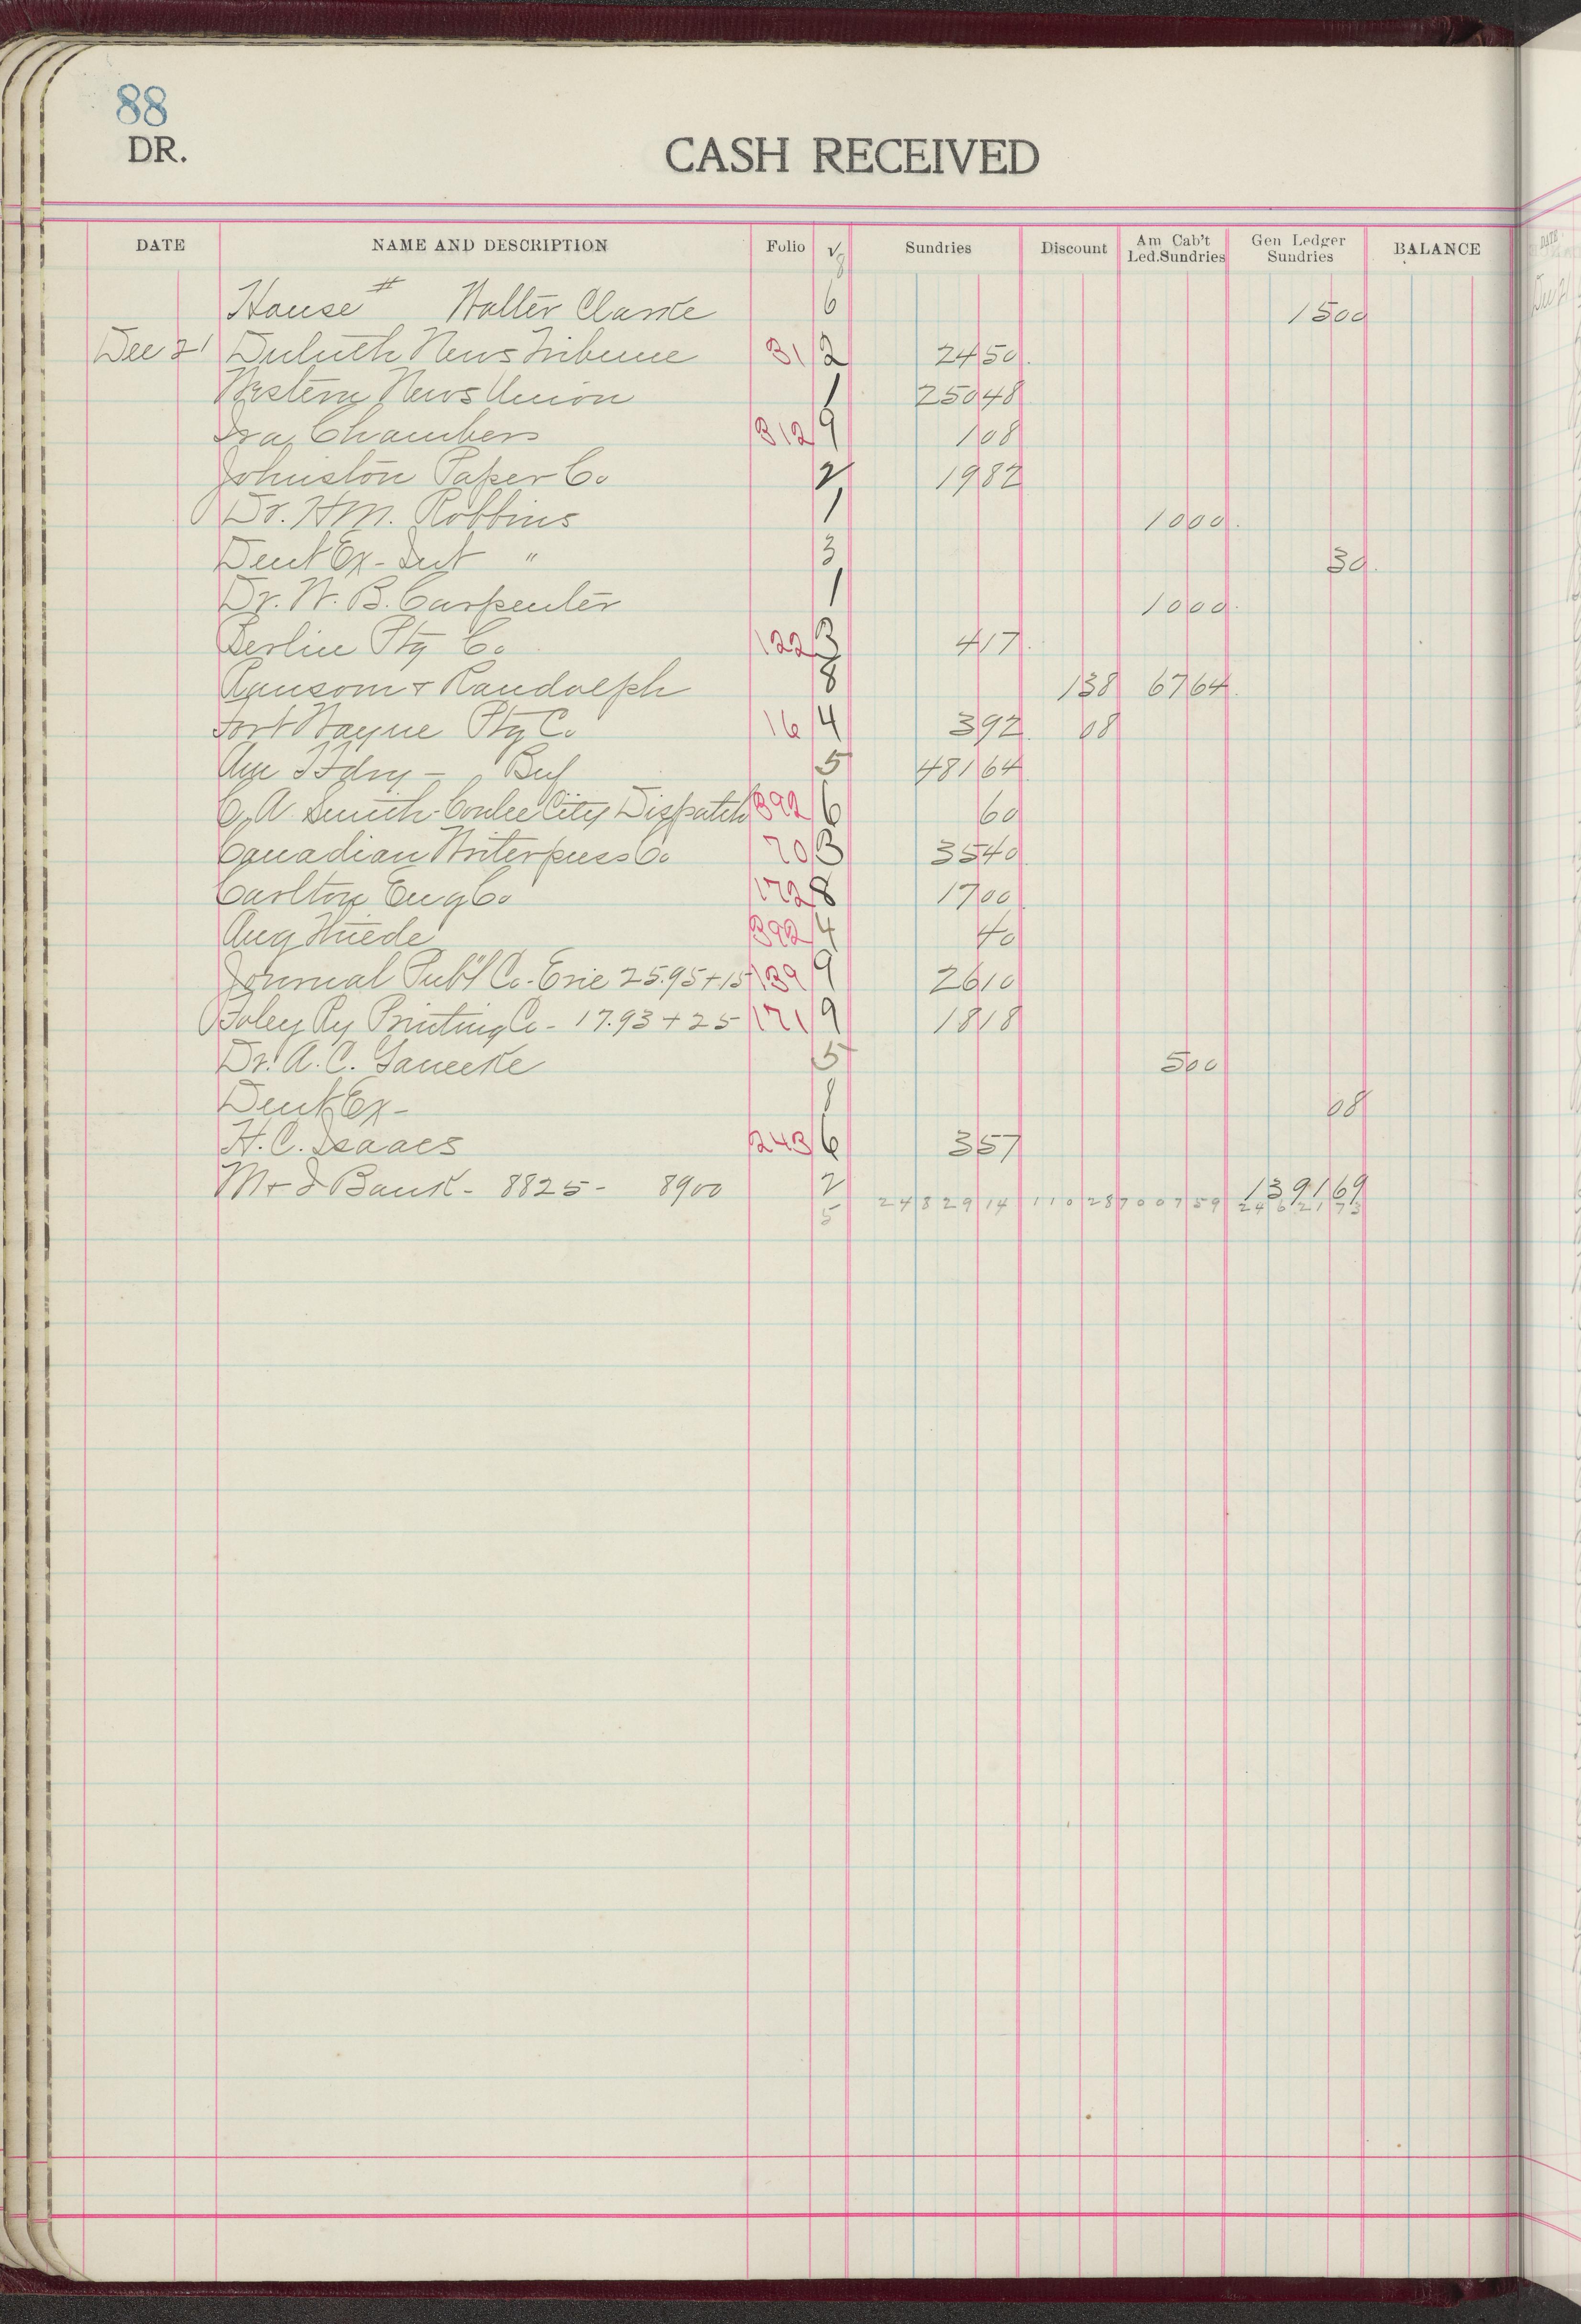 88
DR.
CASH RECEIVED
DATE NAME AND DESCRIPTION Folio √ Sundries Discount Am Cab't Led.Sundries Gen Ledger Sundries BALANCE
8
House # Walter Clarke 6 1500
Dec 21 Duluth News Tribune 31 2 2450
Western News Union 1 25048
Ira Chambers 312 9 108
Johnston Paper Co 2 1982
Dr. H.M. Robbins 1 1000
Dent Ex - Int " 3 30
Dr. W. B. Carpenter 1 1000
Berlin Ptg Co. 122 3 417
Ransom & Randolph 8 138 6764
Fort Wayne Ptg Co 16 4 392 08
Am Fdry - Buf 5 48164
C. A. Smith - Coulee City Dispatch 392 6 60
Canadian Writerpress Co 70 3 3540
Carlton Eng Co 172 8 1700
Aug 392 4 40
Journal Pub'l Co - Erie 25.95 + 15 139 9 2610
Foley Ry Printing Co - 17.93 + 25 171 9 1818
Dr. A. C. 5 500
Dent Ex - 1 08
H. C. Isaacs 243 6 357
M & I Bank - 8825 - 8900 2 139169
5 24829 14 110 28 7007 59 24621 73